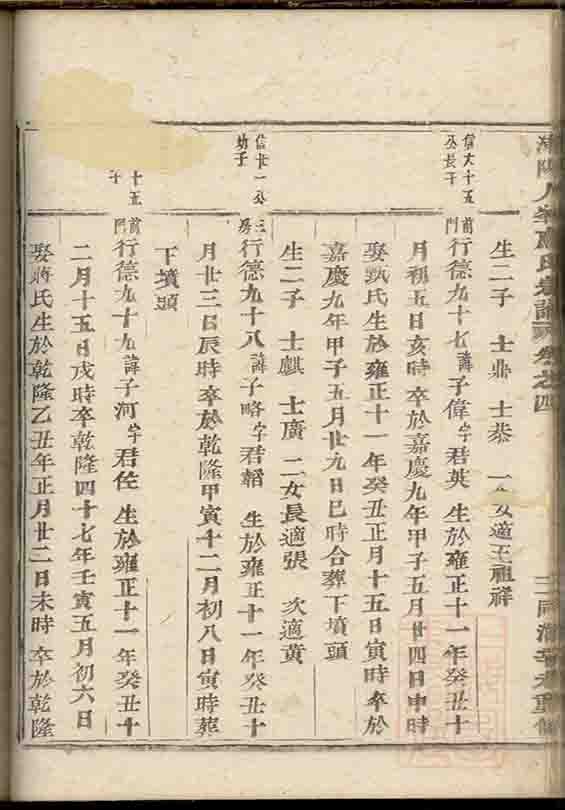 氏宗譜 卷之四
同治辛未重修
生二子 士鼎 士恭 一女適王祖祥
信六十五公長子
前門行德九十七諱子偉字君英 生於雍正十一年癸丑十
月初五日亥時 卒於嘉慶九年甲子五月廿四日申時
娶 氏生於雍正十一年癸丑正月十五日寅時 卒於
嘉慶九年甲子五月廿九日巳時合葬下墳頭
生二子 士麒 士廣 二女長適張 次適黃
信七十一公幼子
三房行德九十八諱子略字君韜 生於雍正十一年癸丑十
月廿三日辰時 卒於乾隆甲寅十二月初八日寅時葬
下墳頭
十五 子
前門行德九十九諱子河字君佐 生於雍正十一年癸丑十
二月十五日戌時卒乾隆四十七年壬寅五月初六日
娶蔣氏生於乾隆乙丑年正月廿二日未時 卒於乾隆